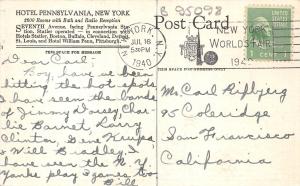 HOTEL PENNSYLVANIA, NEW YORK
2200 Rooms with Bath and Radio Reception
SEVENTH Avenue, facing Pennsylvania Sta-
tion. Statler operated — in connection with
Hotels Statler, Boston, Buffalo, Cleveland, Detroit,
St. Louis, and Hotel William Penn, Pittsburgh.
THIS SPACE FOR MESSAGE
Post Card
THIS SPACE FOR ADDRESS
YORK, N.Y.
JUL 16
5 30 PM
1940
NEW YORK
WORLD'S FAIR
Dear Carl;
Boy, have we been
hitting the hot spots
have seen the bands
of Jimmy Dorsey, Char-
lie Barnet, Larry
Clinton, Gene Krupa
& Will Bradley.
Have even seen the N.Y.
Yanks play 2 games too
Bill
Mr Carl
95 Coleridge
San Francisco
California